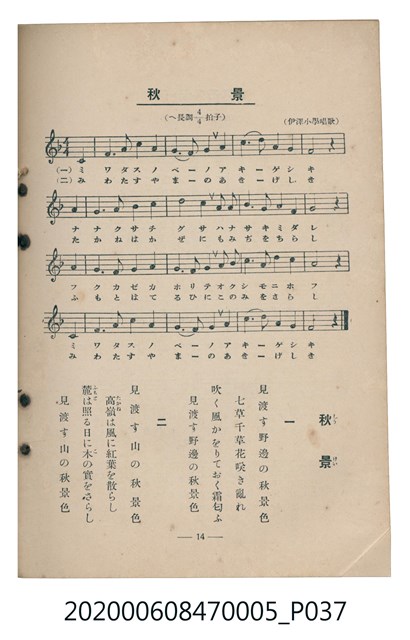 秋景
(ヘ長調 4/4 拍子)
(伊澤小學唱歌)
(一) ミ ワタス ノ ベー ノ アキ ー ゲ ー シ キ
(二) み わたす や まー の あき ー げ し き
ナ ナ ク サ チ グ サ ハ ナ サ キ ミ ダ レ
た か ね は か ぜ に も み ぢ を ち ら し
フ ク カ ゼ カ ホ リ テ オ ク シ モ ニ ホ フ
ふ も と は て る ひ に こ の み を さ ら し
ミ ワ タス ノ ベー ノ アキ ー ゲ ー シ キ
み わ たす や まー の あき ー げ ー し き
秋景
しう けい
一
見渡す野邊の秋景色
七草千草花咲き亂れ
吹く風かをりておく霜匂ふ
見渡す野邊の秋景色
二
見渡す山の秋景色
高嶺は風に紅葉を散らし
麓は照る日に木の實をさらし
見渡す山の秋景色
— 14 —
202000608470005_P037